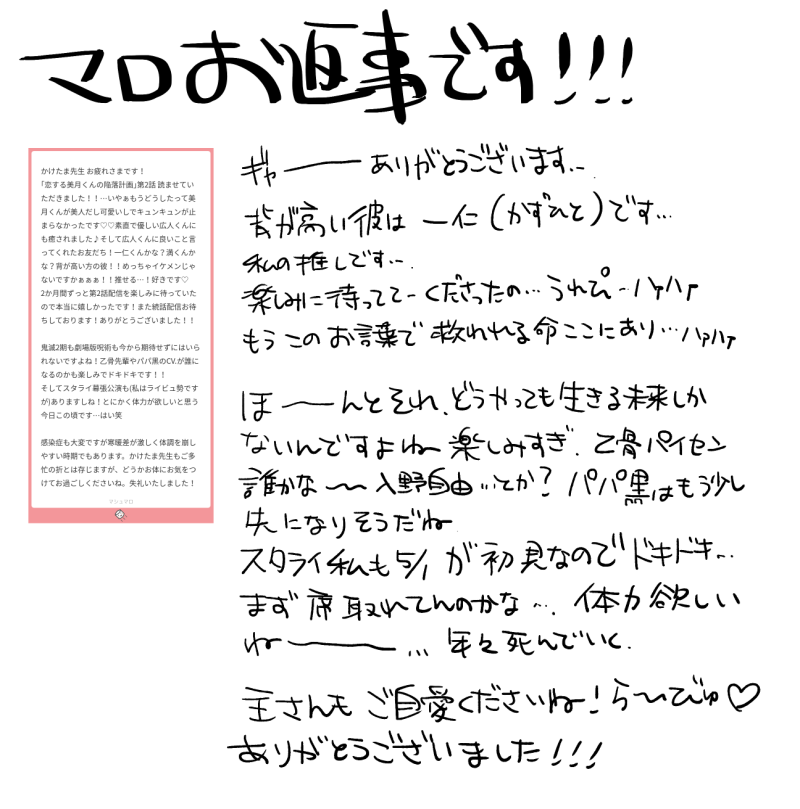 マロお返事です!!!
かけたま先生 お疲れさまです！
｢恋する美月くんの陥落計画｣第2話 読ませてい
ただきました！！…いやぁもうどうしたって美
月くんが美人だし可愛いしでキュンキュンが止
まらなかったです♡♡素直で優しい広人くんに
も癒されました♪そして広人くんに良いこと言
ってくれたお友だち！一仁くんかな？満くんか
な？背が高い方の彼！！めっちゃイケメンじゃ
ないですかぁぁぁ！！推せる…！好きです♡
2か月間ずっと第2話配信を楽しみに待っていた
ので本当に嬉しかったです！また続話配信お待
ちしております！ありがとうございました！！
鬼滅2期も劇場版呪術も今から期待せずにはいら
れないですよね！乙骨先輩やパパ黒のCV.が誰に
なるのかも楽しみでドキドキです！！
そしてスタライ幕張公演も(私はライビュ勢です
が)ありますしね！とにかく体力が欲しいと思う
今日この頃です…はい笑
感染症も大変ですが寒暖差が激しく体調を崩し
やすい時期でもあります。かけたま先生もご多
忙の折とは存じますが、どうかお体にお気をつ
けてお過ごしくださいね。失礼いたしました！
マシュマロ
ギャーーー ありがとうございます…
背が高い彼は 一仁(かずひと)です…
私の推しです…
楽しみに待っててくださったの…うれぴ…ハァハァ
もう このお言葉で 救われる命ここにあり…ハァハァ
ほーーんとそれ、どうやっても生きる未来しか
ないんですよねー 楽しみすぎ. 乙骨パイセン
誰かな〜〜 入野自由…とか? パパ黒はもう少し
失になりそうだね
スタライ私も5/1が初見なのでドキドキ…
まず席取れてんのかな…. 体力欲しい
ねーーー… 年々死んでいく.
主さんも ご自愛くださいね! ら〜びゅ♡
ありがとうございました!!!